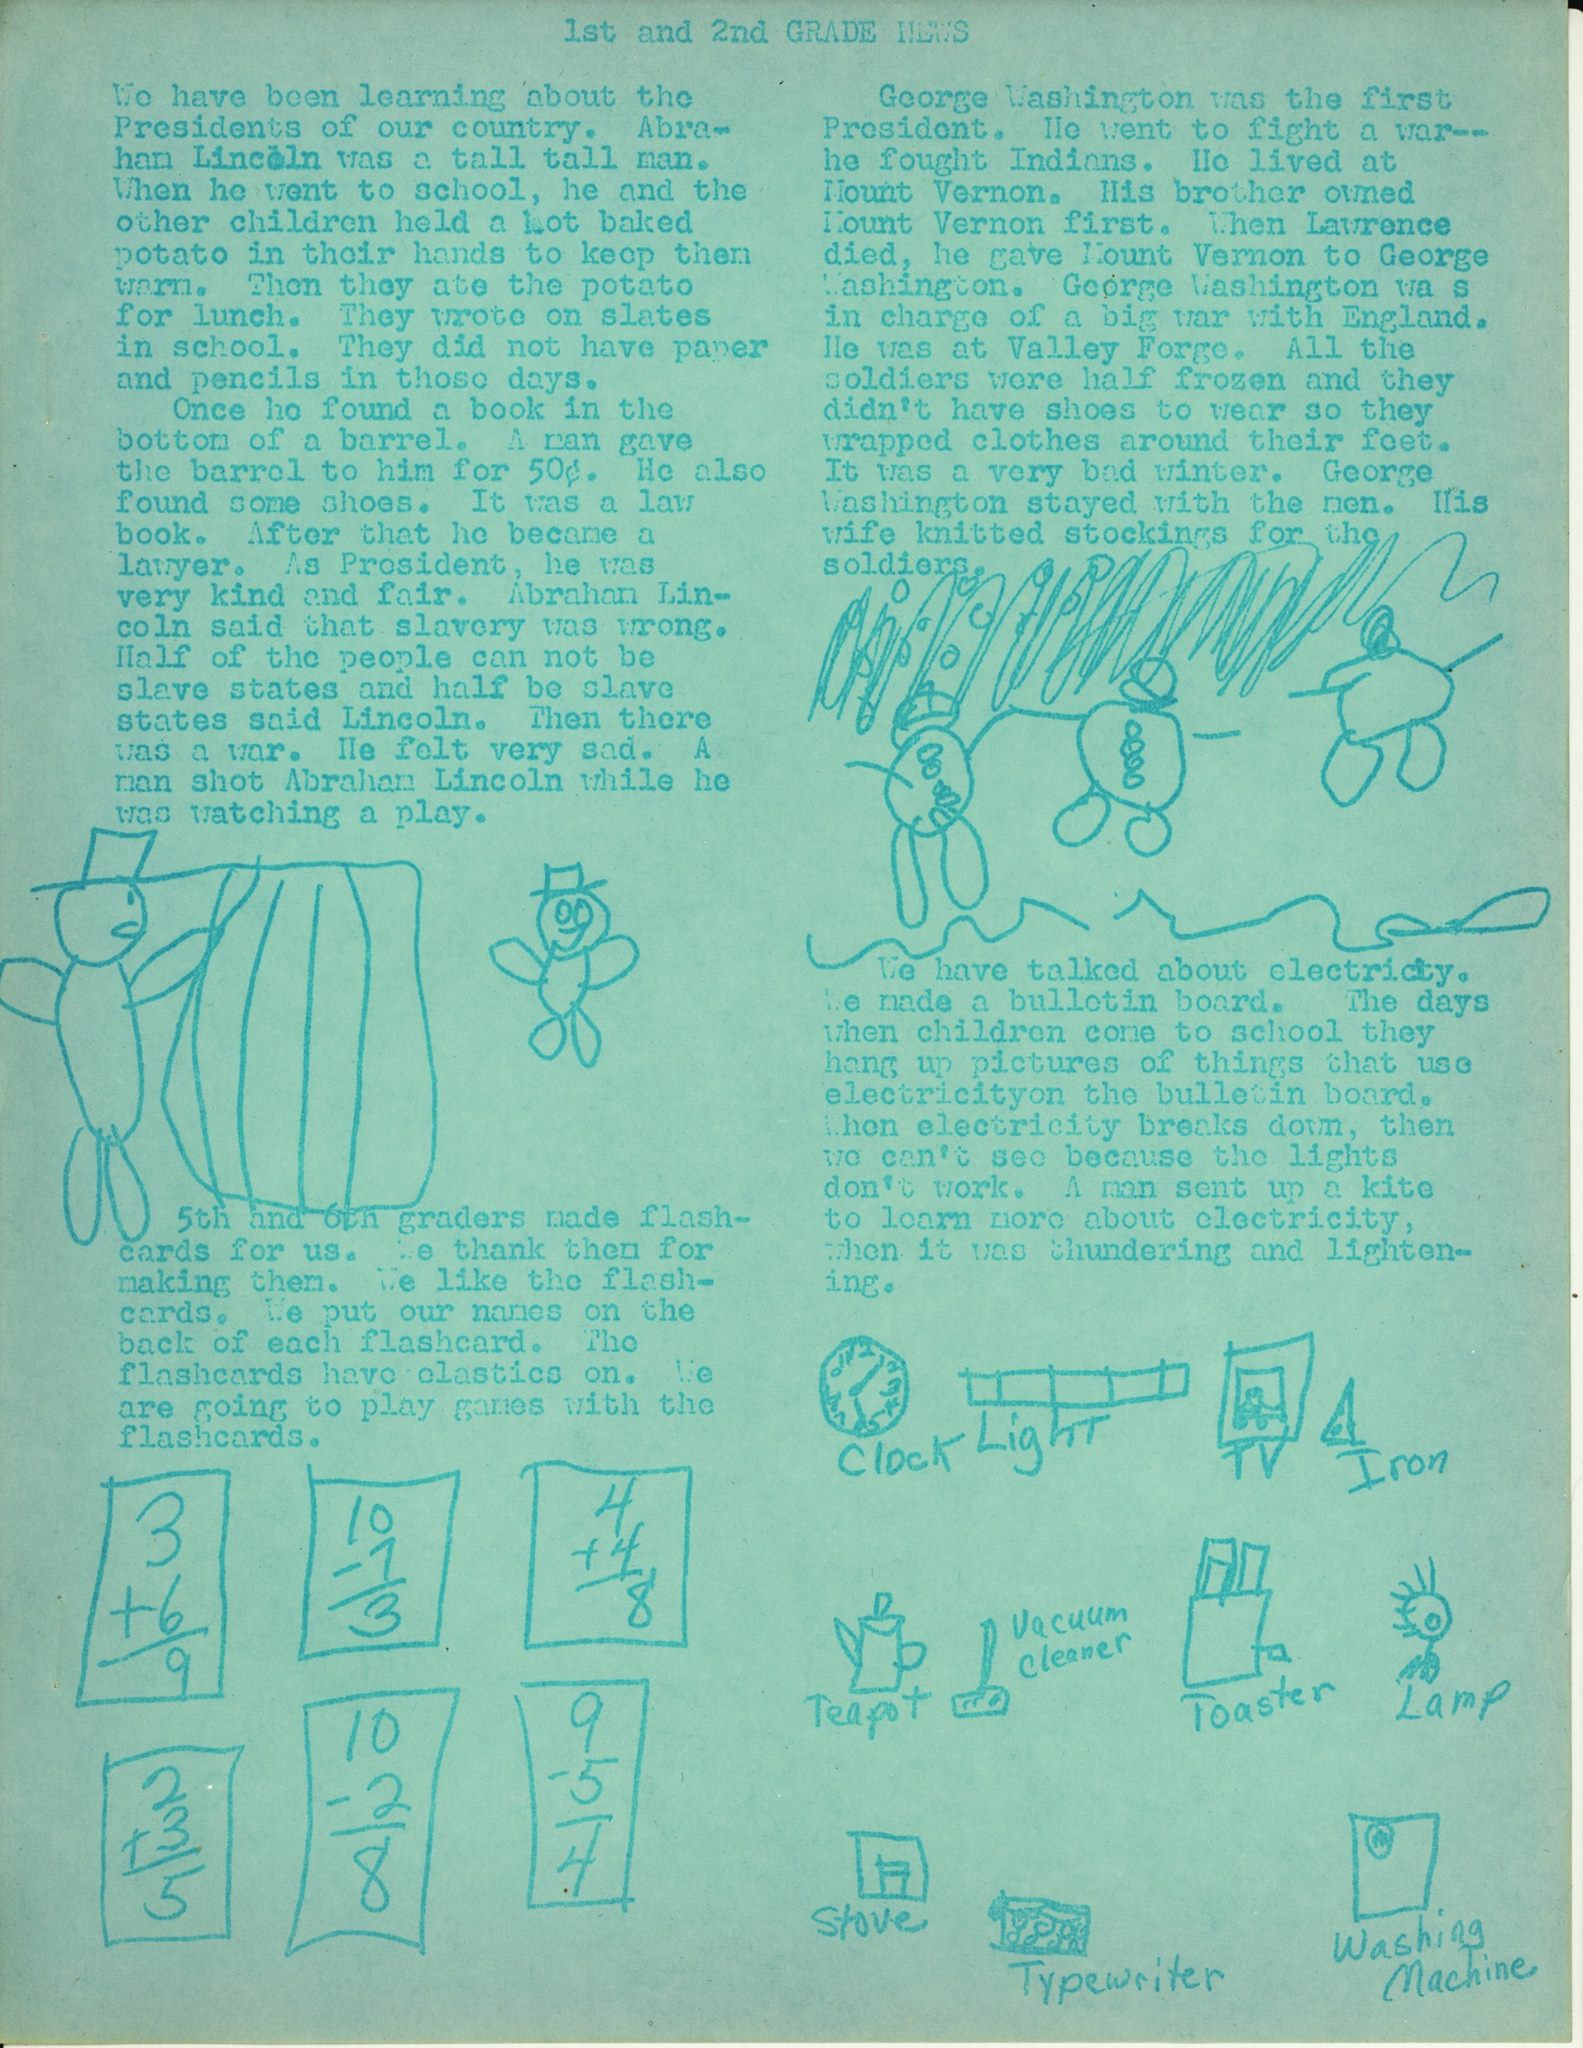 1st and 2nd GRADE NEWS
We have been learning about the
Presidents of our country. Abra-
ham Lincoln was a tall tall man.
When he went to school, he and the
other children held a hot baked
potato in their hands to keep them
warm. Then they ate the potato
for lunch. They wrote on slates
in school. They did not have paper
and pencils in those days.
Once he found a book in the
bottom of a barrel. A man gave
the barrel to him for 50¢. He also
found some shoes. It was a law
book. After that he became a
lawyer. As President, he was
very kind and fair. Abraham Lin-
coln said that slavery was wrong.
Half of the people can not be
slave states and half be slave
states said Lincoln. Then there
was a war. He felt very sad. A
man shot Abraham Lincoln while he
was watching a play.
5th and 6th graders made flash-
cards for us. We thank them for
making them. We like the flash-
cards. We put our names on the
back of each flashcard. The
flashcards have elastics on. We
are going to play games with the
flashcards.
3
+6
9
10
-7
3
4
+4
8
2
+3
5
10
-2
8
9
-5
4
George Washington was the first
President. He went to fight a war--
he fought Indians. He lived at
Mount Vernon. His brother owned
Mount Vernon first. When Lawrence
died, he gave Mount Vernon to George
Washington. George Washington wa s
in charge of a big war with England.
He was at Valley Forge. All the
soldiers were half frozen and they
didn't have shoes to wear so they
wrapped clothes around their feet.
It was a very bad winter. George
Washington stayed with the men. His
wife knitted stockings for the
soldiers.
We have talked about electricty.
We made a bulletin board. The days
when children come to school they
hang up pictures of things that use
electricityon the bulletin board.
When electricity breaks down, then
we can't see because the lights
don't work. A man sent up a kite
to learn more about electricity,
when it was thundering and lighten-
ing.
Clock Light TV Iron
Teapot Vacuum
Cleaner
Toaster Lamp
Stove
Typewriter
Washing
Machine